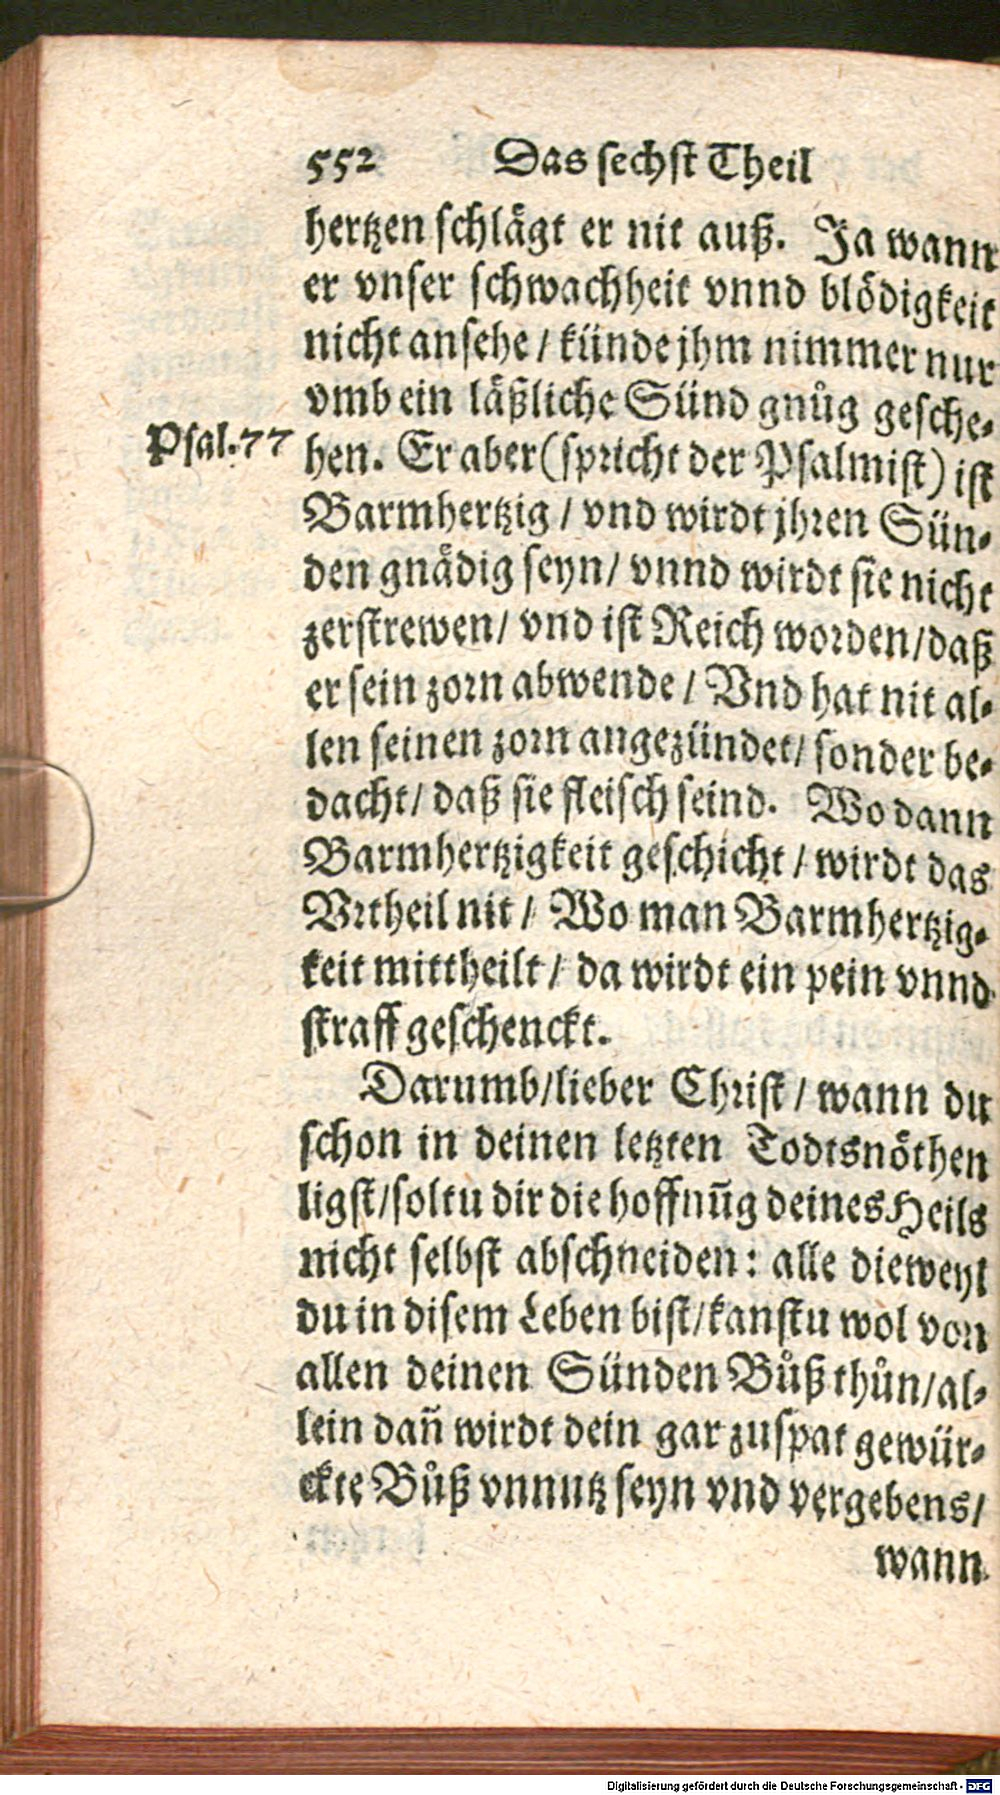 552 Das sechst Theil
hertzen schlägt er nit auß. Ja wann
er vnser schwachheit vnnd blödigkeit
nicht ansehe / künde jhm nimmer nur
vmb ein läßliche Sünd gnůg gesche-
Psal. 77
hen. Er aber (spricht der Psalmist) ist
Barmhertzig / vnd wirdt jhren Sün-
den gnädig seyn / vnnd wirdt sie nicht
zerstrewen / vnd ist Reich worden / daß
er sein zorn abwende / Vnd hat nit al-
len seinen zorn angezündet / sonder be-
dacht / daß sie fleisch seind. Wo dann
Barmhertzigkeit geschicht / wirdt das
Vrtheil nit / Wo man Barmhertzig-
keit mittheilt / da wirdt ein pein vnnd
straff geschenckt.
Darumb / lieber Christ / wann du
schon in deinen letzten Todtsnöthen
ligst / soltu dir die hoffnūg deines Heils
nicht selbst abschneiden: alle dieweyl
du in disem Leben bist / kanstu wol von
allen deinen Sünden Bůß thůn / al-
lein dañ wirdt dein gar zuspat gewür-
ckte Bůß vnnutz seyn vnd vergebens /
wann
Digitalisierung gefördert durch die Deutsche Forschungsgemeinschaft - DFG